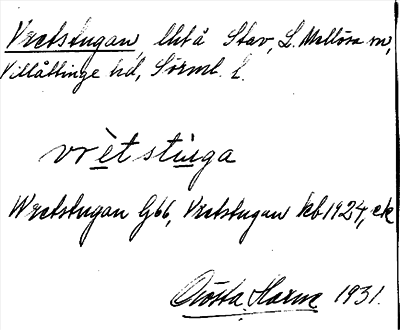 Vretstugan, lht å Stav, L. Mellösa sn,
Villåttinge hd, Sörml. l.
vrètstùga
Wretstugan G66, Vretstugan kb 1924, ek
Gösta 1931.